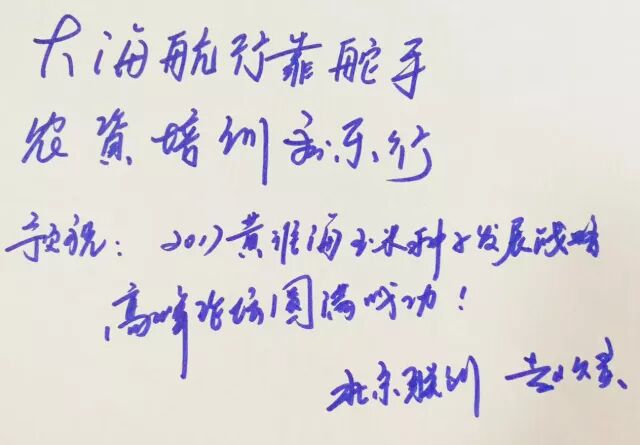 大海航行靠舵手
农資培训来行
预祝：2017黄淮海玉米种子发展战略
高峰论坛圆满成功！
北京联训